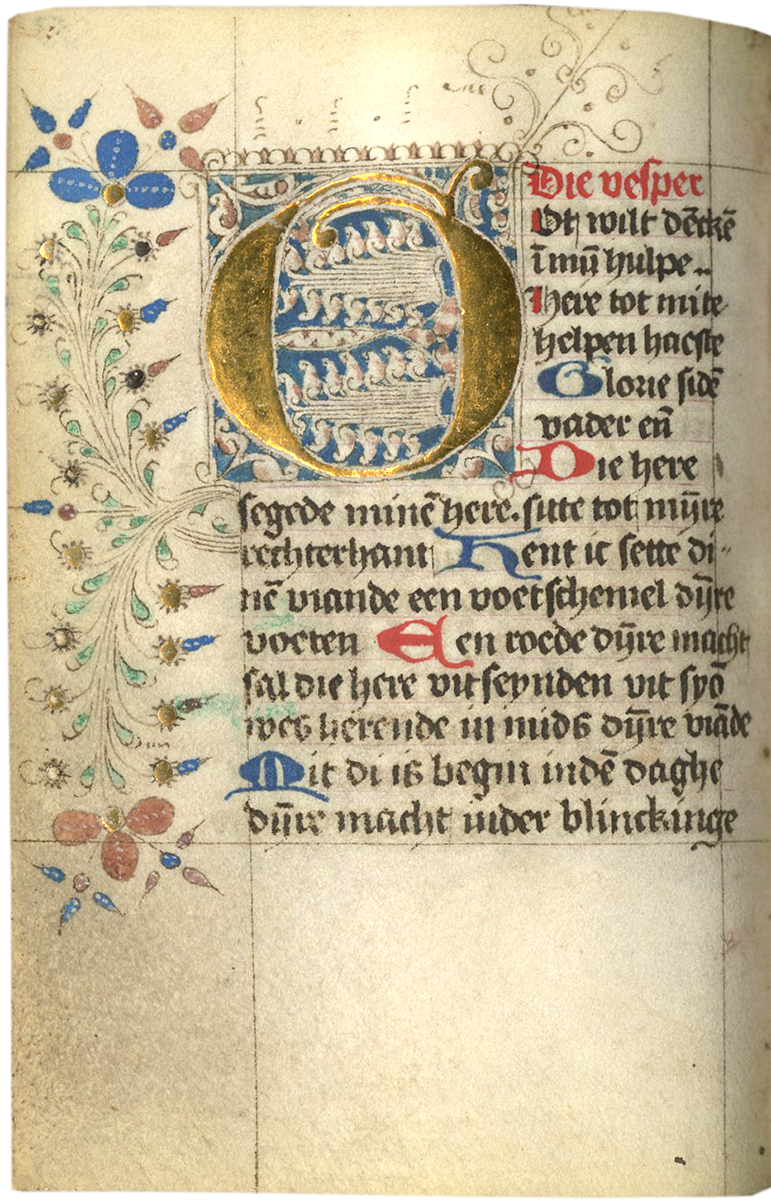 Die vesper
Ot wilt dēckē
ī mijn̄ hulpe
Here tot mi te
helpen haeste
Glorie sidē
vader en̄
Die here
segede minē here. sitte tot mijn̄re
rechterhant Hent ic sette di-
nē viande een voetschemel dijn̄re
voeten Een roede dijn̄re macht
sal die here vut seynden vut syō
wes herende in mids dijn̄re viāde
Mit di is begin in dē daghe
dijn̄re macht in der blinckinge